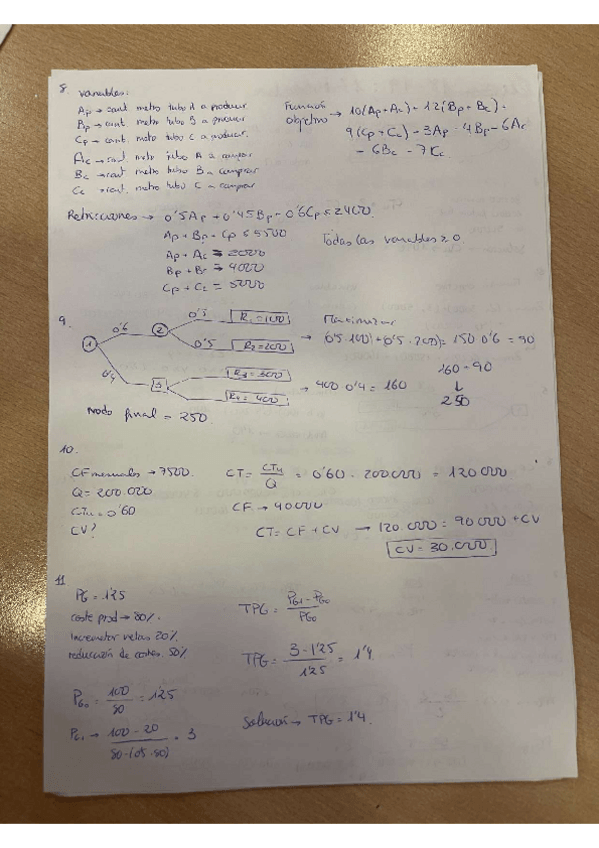 8. Variables:
Ap → cant metro tubo A a producir
Bp → cant metro tubo B a producir
Cp → cant. metro tubo C a producir.
Ac → cant. metro tubo A a comprar
Bc → cant metro tubo B a comprar
Cc → cant. metro tubo C a comprar
Función objetivo → 10(Ap+Ac) + 12(Bp+Bc) +
9(Cp+Cc) - 3Ap - 4Bp - 6Ac
- 6Bc - 7Cc
Restricciones → 0'5Ap + 0'45Bp + 0'6Cp ≤ 2400.
Ap + Bp + Cp ≤ 5500
Todas las variables ≥ 0
Ap + Ac = 2000
Bp + Bc = 4000
Cp + Cc = 5000
9.
1
0'6
2
0'5
R1=100
0'5
R2=200
0'4
3
R3=300
R4=400
Maximizar
→ (0'5·100)+(0'5·200)= 150 0'6 = 90
→ 400 0'4 = 160
160 + 90
↓
250
Nodo final = 250.
10.
CF mensuales → 7500.
Q = 200.000
CTu = 0'60
CV?
CT = CTu/Q = 0'60 · 200000 = 120000
CF → 90000
CT = CF + CV → 120.000 = 90000 + CV
CV = 30.000
11
PG = 1'25
coste prod → 80%.
Incrementar ventas 20%
reducción de costes. 50%
PG0 = 100/80 = 1'25
PG1 → 100 + 20/80-(0'5·80) = 3
TPG = PG1 - PG0/PG0
TPG = 3 - 1'25/1'25 = 1'4
Solución → TPG = 1'4.